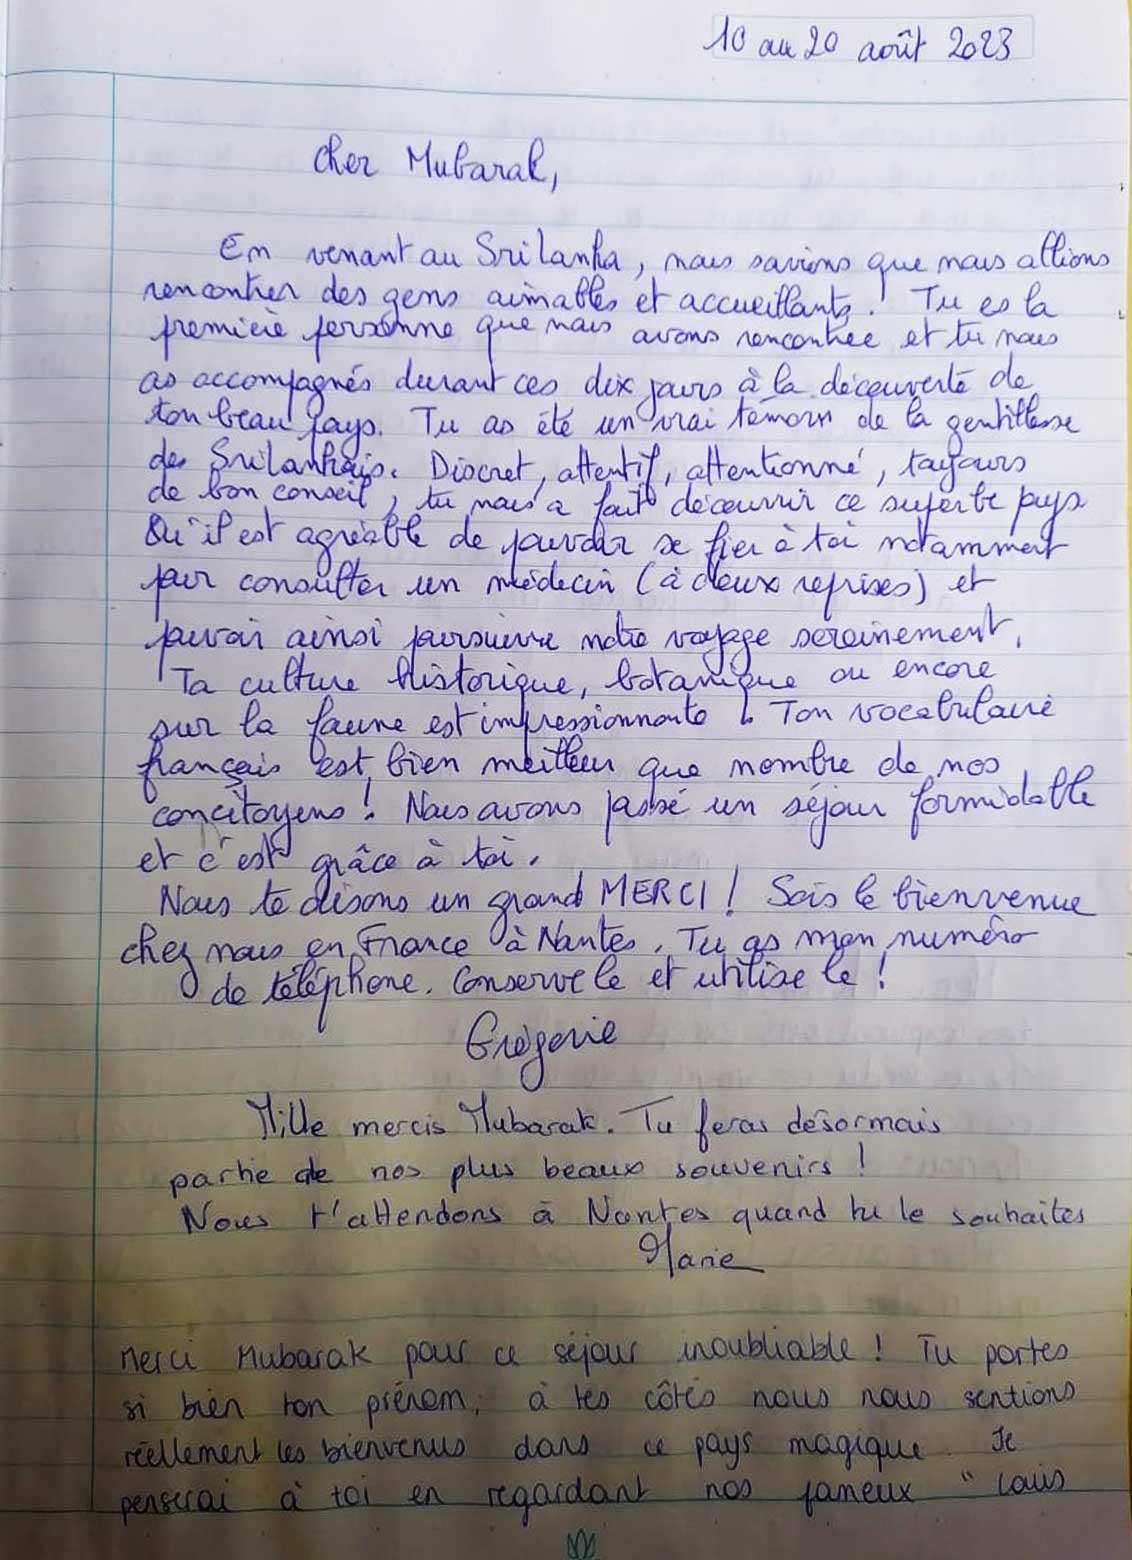 10 au 20 août 2023
Cher Mubarak,
En venant au Sri Lanka, nous savions que nous allions
rencontrer des gens aimables et accueillants. Tu es la
première personne que nous avons rencontrée et tu nous
as accompagnés durant ces dix jours à la découverte de
ton beau pays. Tu as été un vrai témoin de la gentillesse
des Srilankais. Discret, attentif, attentionné, toujours
de bon conseil, tu nous a fait découvrir ce superbe pays.
Qu'il est agréable de pouvoir se fier à toi notamment
pour consulter un médecin (à deux reprises) et
pouvoir ainsi poursuivre notre voyage sereinement.
Ta culture historique, botanique ou encore
sur la faune est impressionnante. Ton vocabulaire
français est bien meilleur que nombre de nos
concitoyens ! Nous avons passé un séjour formidable
et c'est grâce à toi.
Nous te disons un grand MERCI ! Sois le bienvenue
chez nous en France à Nantes. Tu as mon numéro
de téléphone. Conserve le et utilise le !
Grégorie
Mille mercis Mubarak. Tu feras désormais
partie de nos plus beaux souvenirs !
Nous t'attendons à Nantes quand tu le souhaites
Marie
Merci Mubarak pour ce séjour inoubliable ! Tu portes
si bien ton prénom ; à tes côtés nous nous sentions
réellement les bienvenus dans ce pays magique. Je
penserai à toi en regardant nos fameux " Louis